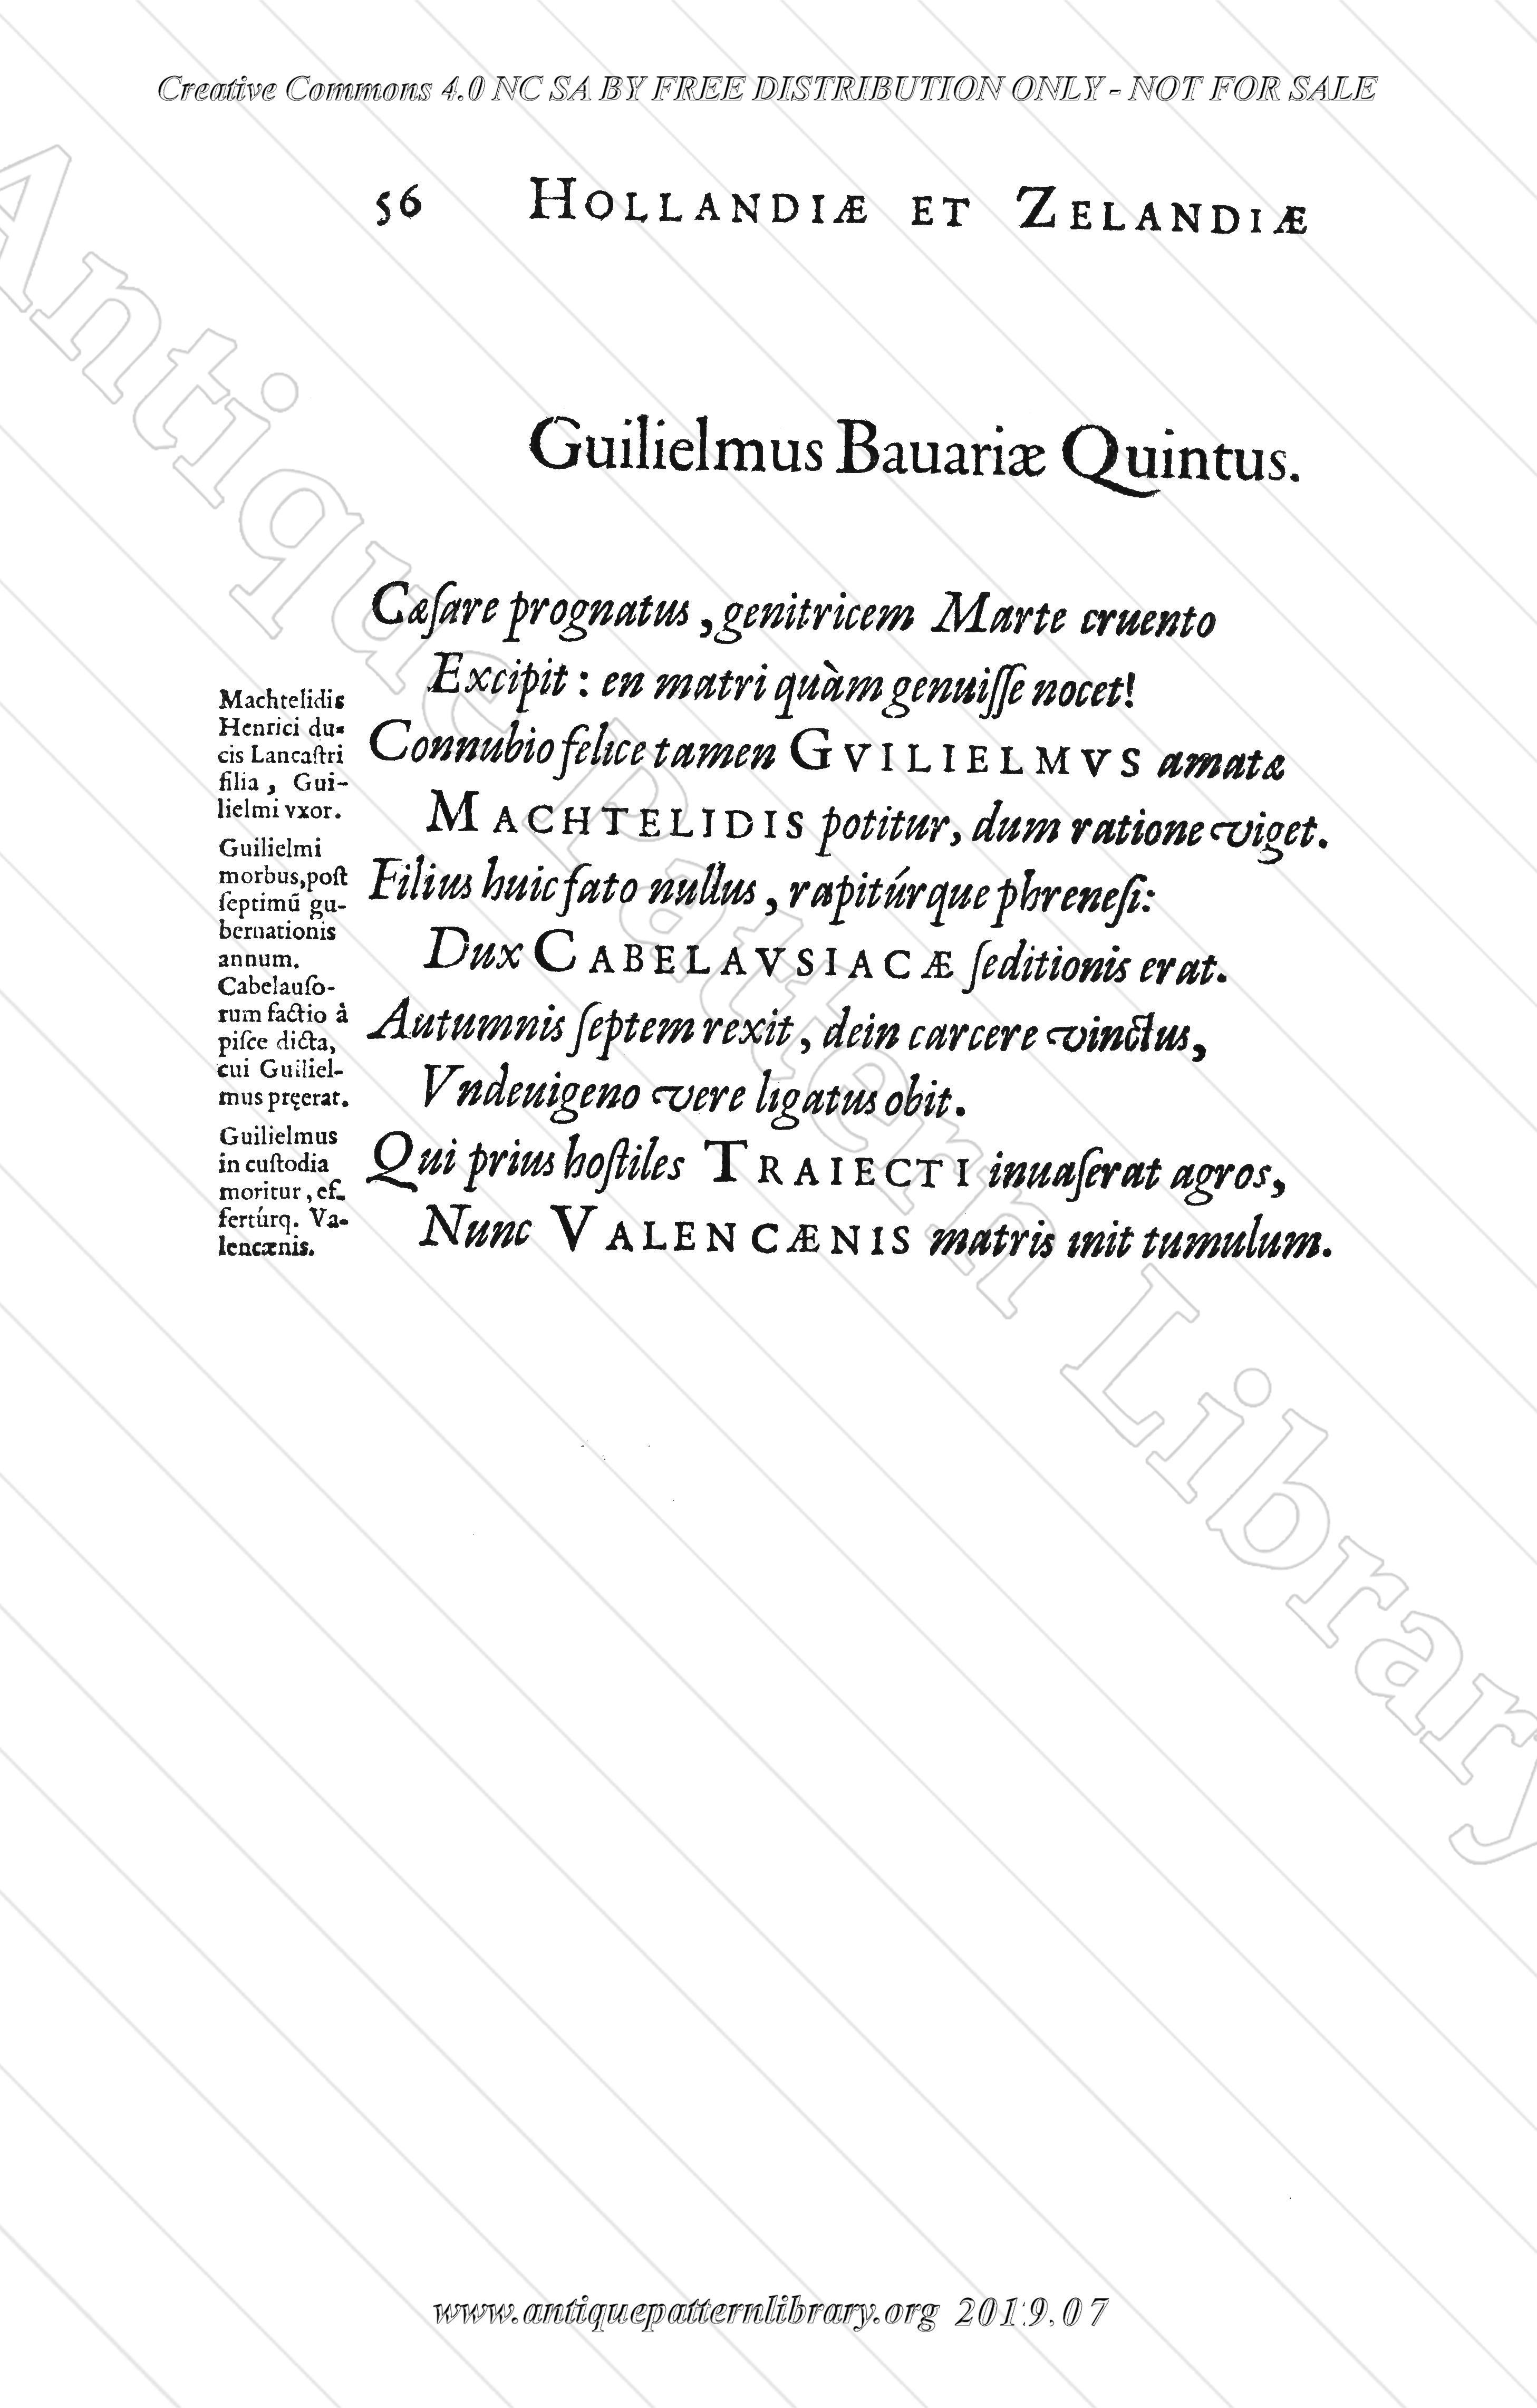 Creative Commons 4.0 NC SA BY FREE DISTRIBUTION ONLY - NOT FOR SALE
56 HOLLANDIÆ ET ZELANDIÆ
Guilielmus Bauariæ Quintus.
Cæſare prognatus, genitricem Marte cruento
Excipit: en matri quàm genuiſſe nocet!
Connubio felice tamen GVILIELMVS amatæ
MACHTELIDIS potitur, dum ratione viget.
Filius huic fato nullus, rapitúrque phreneſi:
Dux CABELAVSIACÆ ſeditionis erat.
Autumnis ſeptem rexit, dein carcere vinctus,
Vndeuigeno vere ligatus obit.
Qui prius hoſtiles TRAIECTI inuaſerat agros,
Nunc VALENCÆNIS matris init tumulum.
Machtelidis
Henrici du-
cis Lancaſtri
filia, Gui-
lielmi vxor.
Guilielmi
morbus, poſt
ſeptimũ gu-
bernationis
annum.
Cabelauſo-
rum factio à
piſce dicta,
cui Guiliel-
mus pręerat.
Guilielmus
in cuſtodia
moritur, ef-
fertúrq. Va-
lencænis.
Antique Pattern Library
www.antiquepatternlibrary.org 2019.07